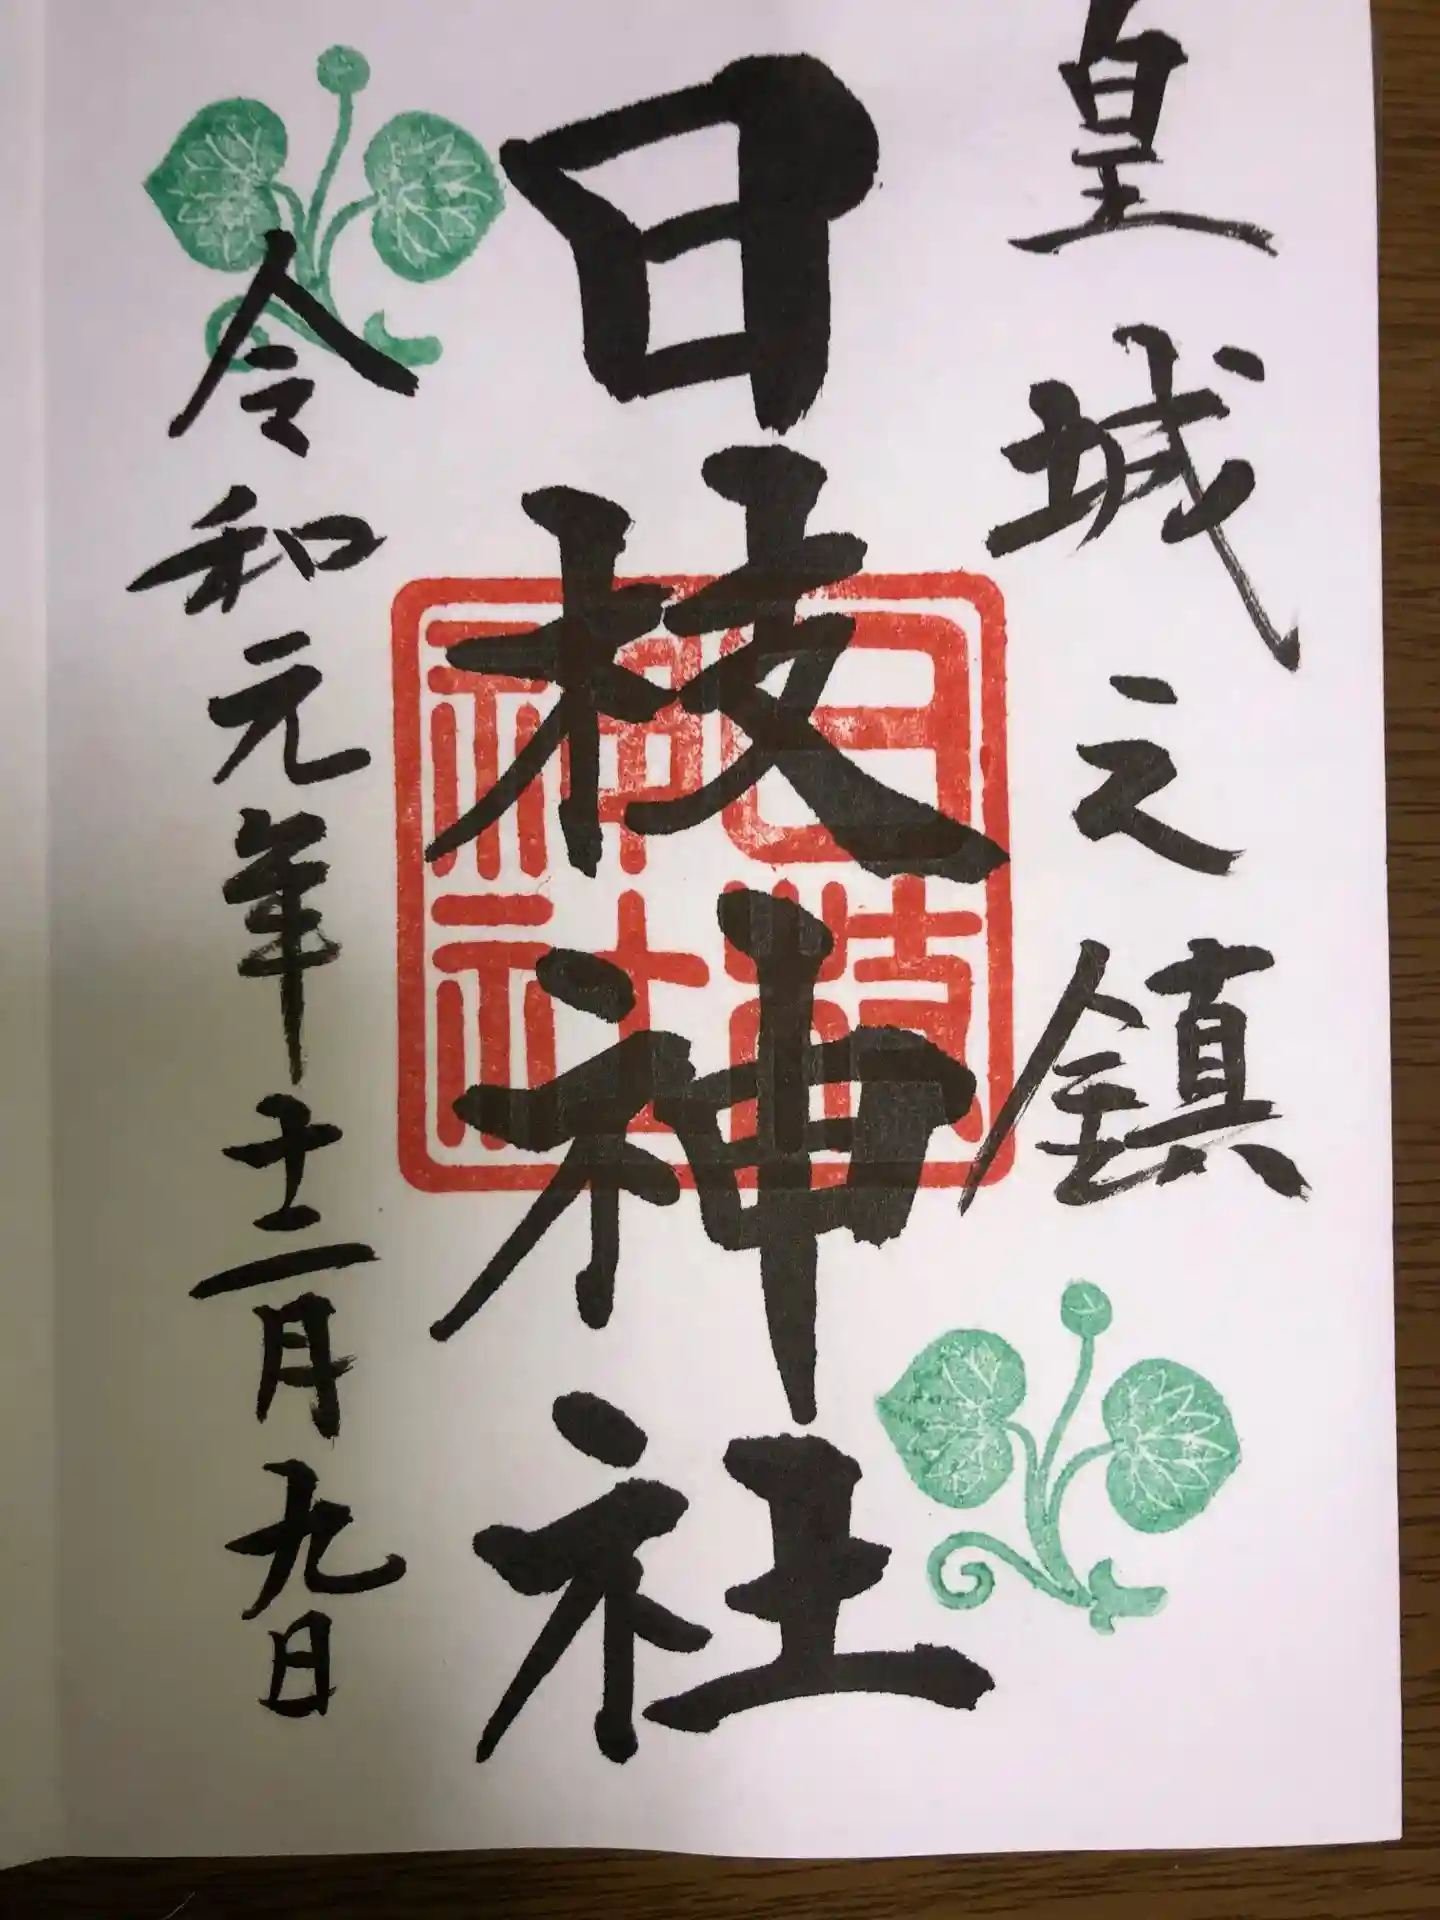 皇城之鎮
日枝神社
日枝神社
令和元年十二月九日